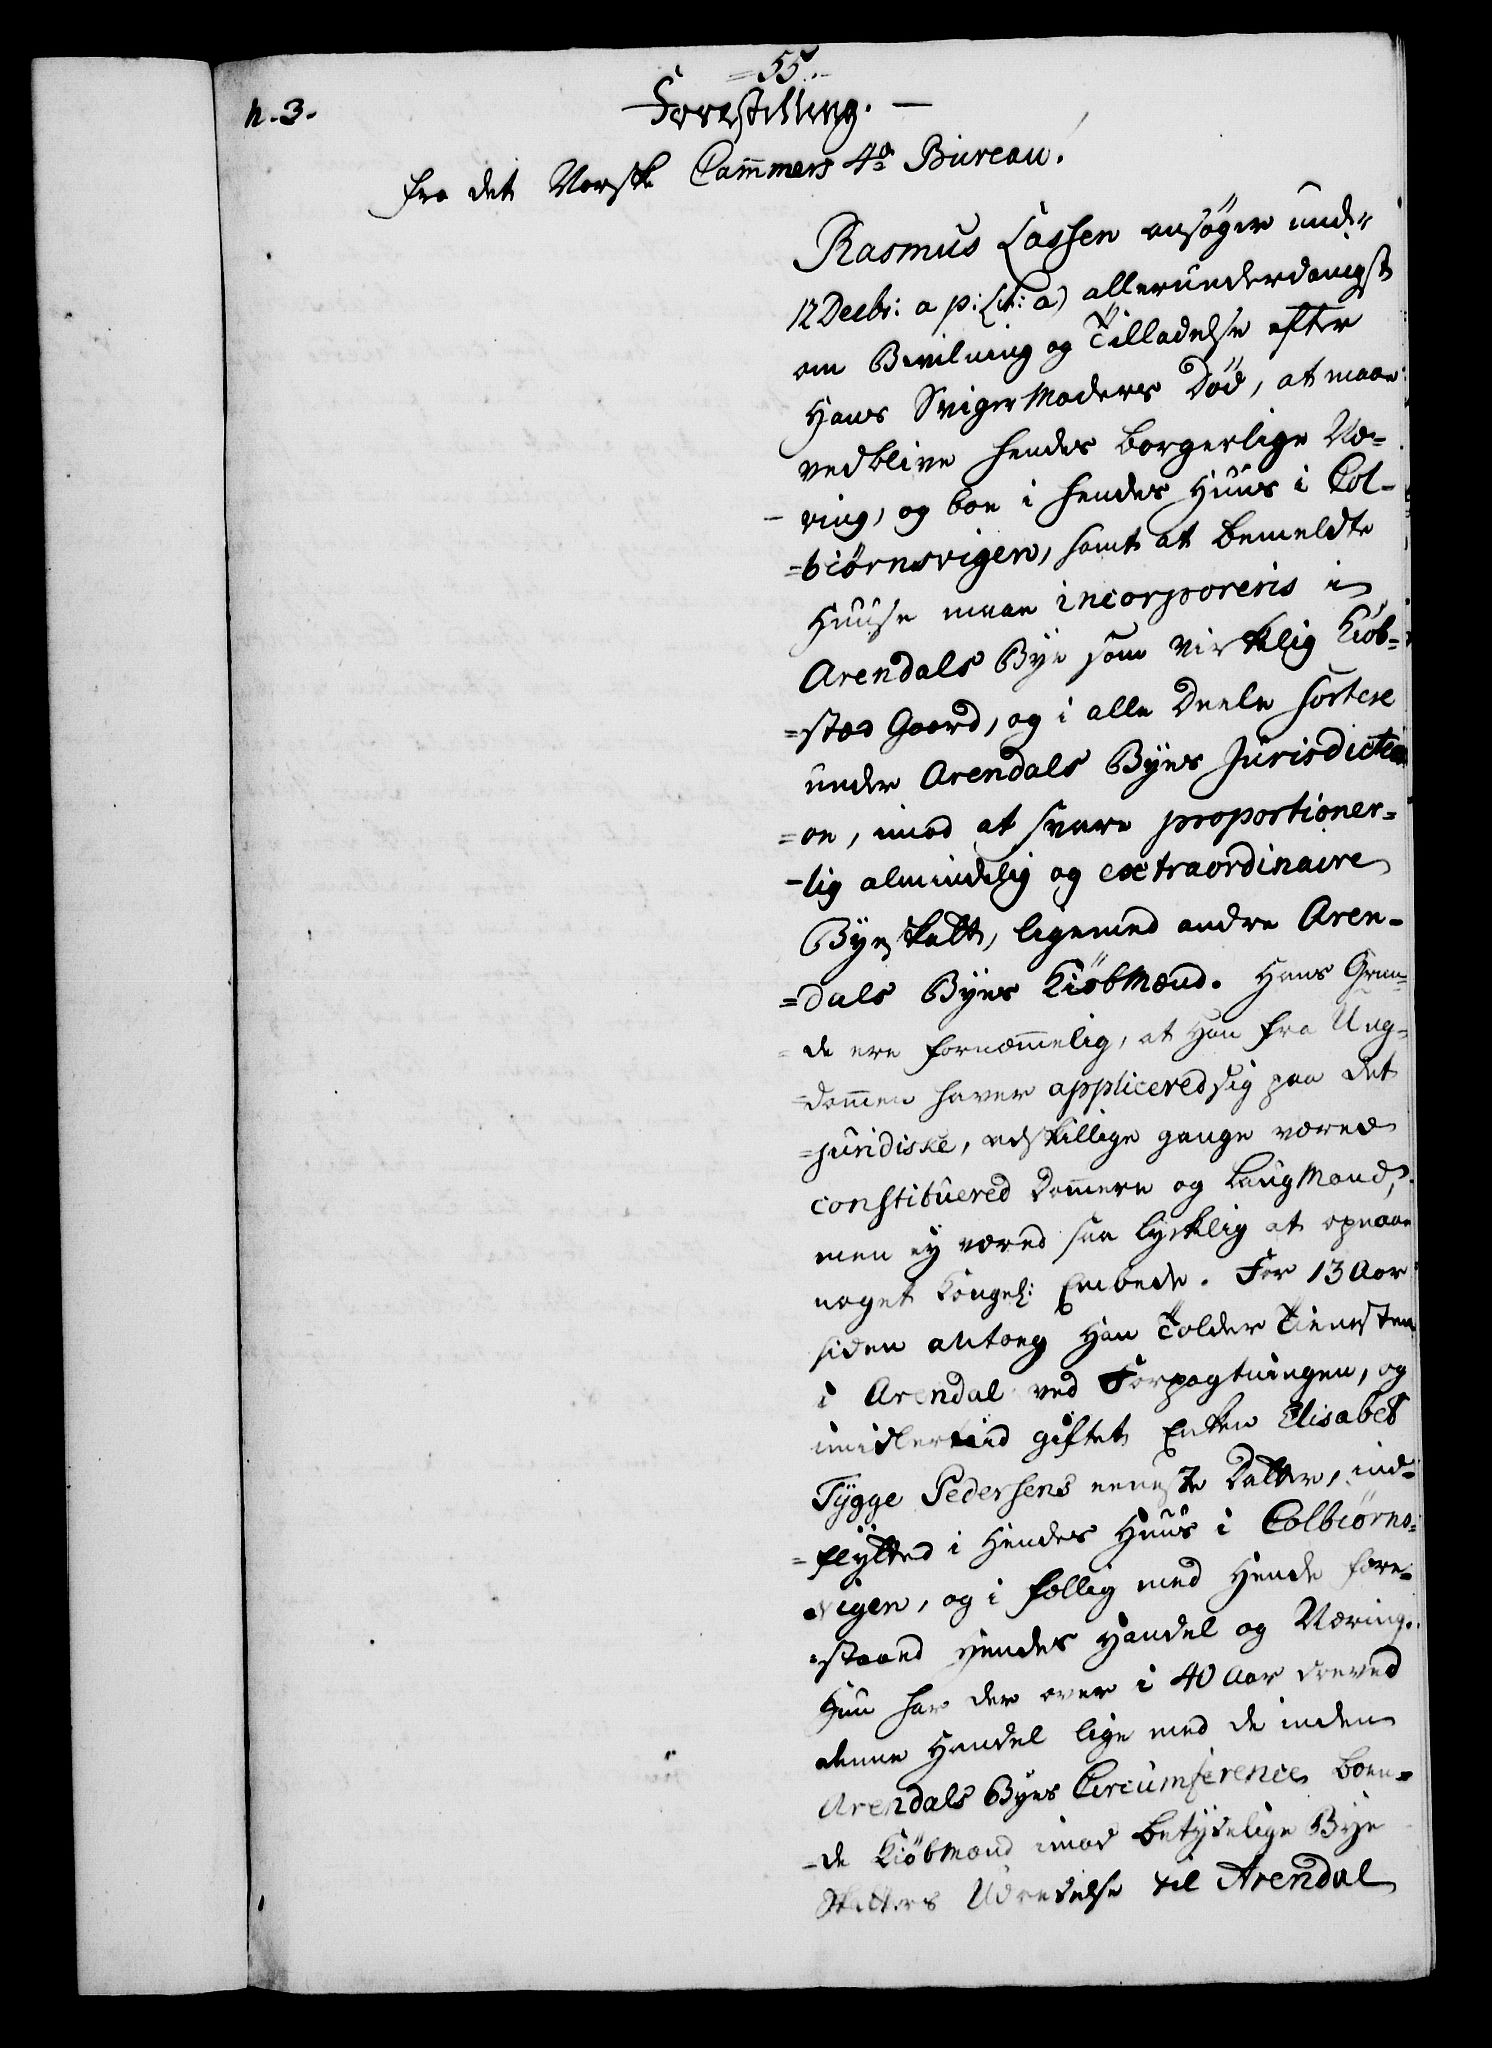 =55.=
n. 3.
Forestilling. —
fra det Norske Cammers 4de Bureau.
Rasmus Lassen ansøger under
12 Decbr: a p: (Lit: a) allerunderdanigst
om Bevilning og Tilladelse efter
Hans SvigerModers Død, at maae
vedblive hendes borgerlige Næ-
-ring, og boe i hendes Huus i Col-
=biørnsvigen, samt at bemeldte
Huuse maae incorporeris i
Arendals Bye som virkelig Kiøb-
=stæd Gaard, og i alle Deele sortere
under Arendals Byes Jurisdicti
=on, imod at svare proportioner-
-lig almindelig og extraordinaire
Byeskatt, ligemed andre Aren-
=dals Byes Kiøbmænd. Hans Grun-
=de ere fornemmelig, at Han fra Ung-
=dommen haver applicered sig paa det
=juridiske, adskillige gange været
constitueret Dommere og LaugMand,
men ey været saa lykkelig at opnaae
noget Kongel: Embede. For 13 Aar
siden antoeg Han Tolder Tienesten
i Arendal ved Forpagtningen, og
imidlertiid giftet Enken Elisabet
Tygge Pedersens eneste Datter, ind-
=flytted i Hendes Huus i Colbiørns-
vigen, og i fællig med Hende fore-
=staaed Hendes Handel og Næring.
Hun har der over i 40 Aar drevet
denne Handel lige med de inden
Arendals Byes Circumference boen-
=de Kiøbmænd imod betydelige Bye
Skatters Udredelse til Arendal